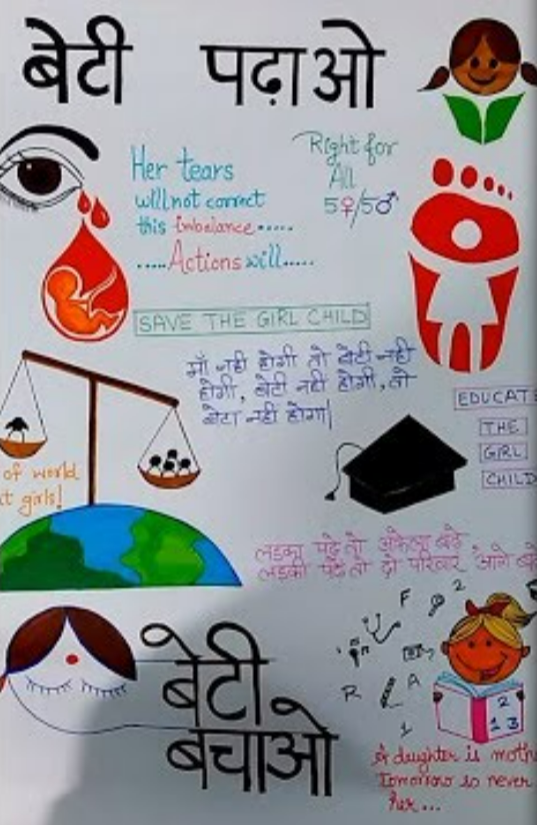 बेटी पढ़ाओ
Her tears
will not correct
this imbalance.....
.....Actions will.....
Right for
All
5♀/5♂
SAVE THE GIRL CHILD
माँ नही होगी तो बेटी नही
होगी, बेटी नही होगी, तो
बेटा नही होगा|
EDUCATE
THE
GIRL
CHILD
of world
girls!
लड़का पढ़े तो अकेला बढ़े
लड़की पढ़े तो दो परिवार आगे
F
2
R
A
1
2
1 3
बेटी
बचाओ
A daughter is
Tomorrow is never
her...